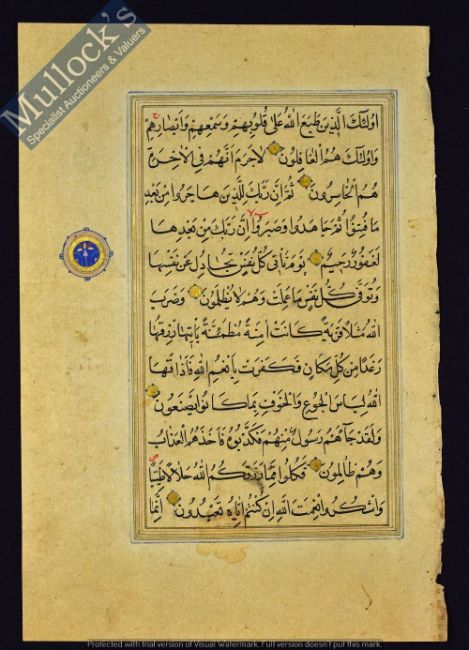 Mullock's
Specialist Auctioneers & Valuers
اولئك الذين طبع الله على قلوبهم وسمعهم وابصارهم
واولئك هم الغافلون لاجرم انهم في الاخرة
هم الخاسرون ثم ان ربك للذين هاجروا من بعد
ما فتنوا ثم جاهدوا وصبروا ان ربك من بعدها
لغفور رحيم يوم تأتي كل نفس تجادل عن نفسها
وتوفى كل نفس ما عملت وهم لا يظلمون وضرب
الله مثلا قرية كانت امنة مطمئنة يأتيها رزقها
رغدا من كل مكان فكفرت بأنعم الله فأذاقها
الله لباس الجوع والخوف بما كانوا يصنعون
ولقد جاءهم رسول منهم فكذبوه فأخذهم العذاب
وهم ظالمون فكلوا مما رزقكم الله حلالا طيبا
واشكروا نعمت الله ان كنتم اياه تعبدون انما
Protected with trial version of Visual Watermark. Full version doesn't put this mark.